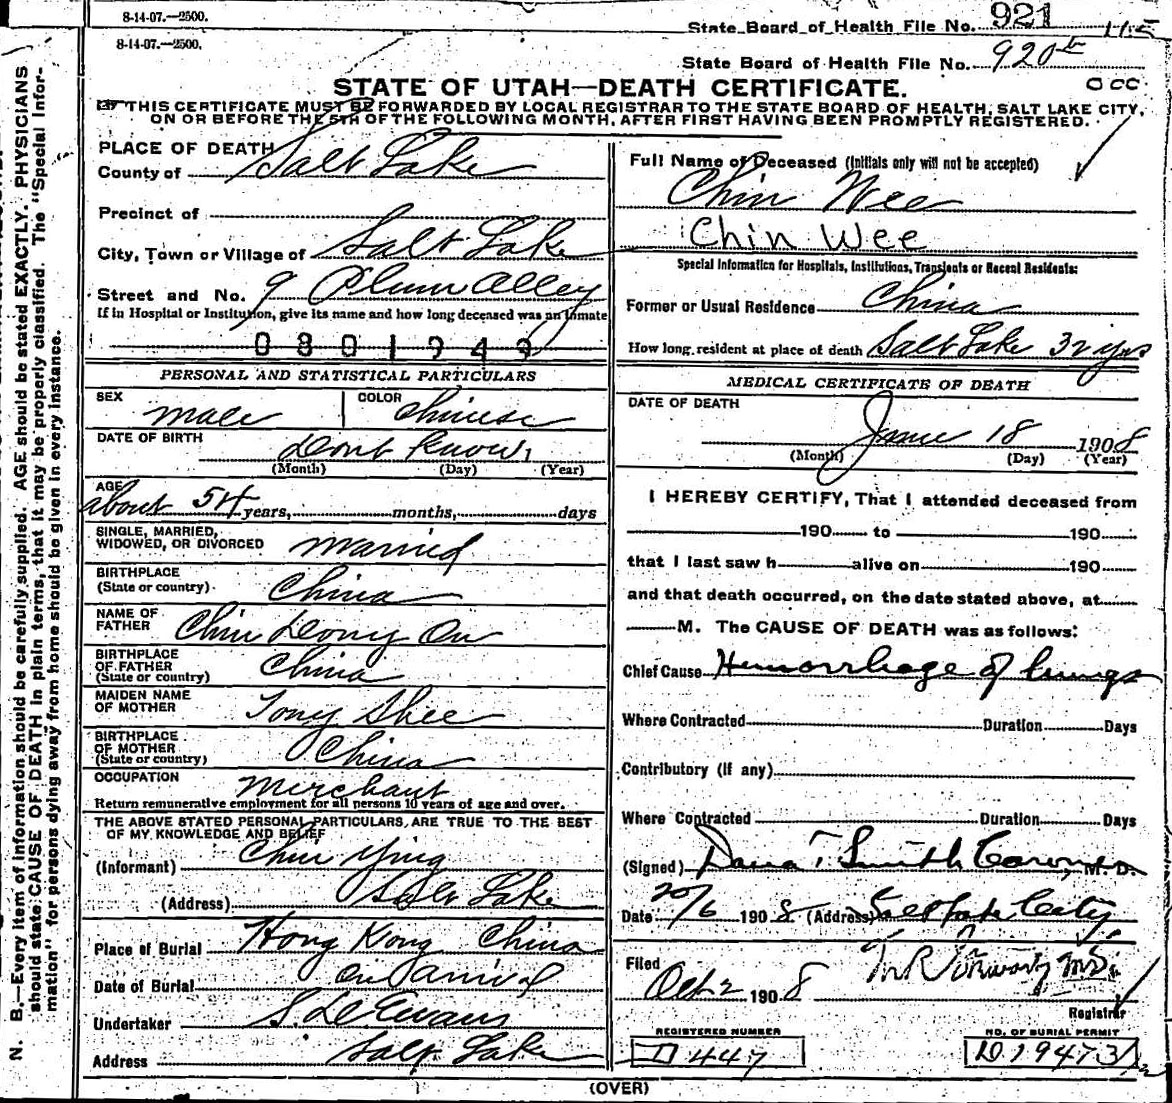 8-14-07.—2500.
State Board of Health File No. 921
8-14-07.—2500.
State Board of Health File No. 920
STATE OF UTAH—DEATH CERTIFICATE.
THIS CERTIFICATE MUST BE FORWARDED BY LOCAL REGISTRAR TO THE STATE BOARD OF HEALTH, SALT LAKE CITY,
ON OR BEFORE THE 5TH OF THE FOLLOWING MONTH, AFTER FIRST HAVING BEEN PROMPTLY REGISTERED.
N. B.—Every item of information should be carefully supplied. AGE should be stated EXACTLY. PHYSICIANS
should state CAUSE OF DEATH in plain terms, that it may be properly classified. The "Special Infor-
mation" for persons dying away from home should be given in every instance.
PLACE OF DEATH
County of Salt Lake
Precinct of
City, Town or Village of Salt Lake
Street and No. 9 Plum Alley
If in Hospital or Institution, give its name and how long deceased was an inmate
0801949
PERSONAL AND STATISTICAL PARTICULARS
SEX male COLOR Chinese
DATE OF BIRTH Dont Know
(Month) (Day) (Year)
AGE
about 54 years, months, days
SINGLE, MARRIED,
WIDOWED, OR DIVORCED married
BIRTHPLACE
(State or country) China
NAME OF
FATHER Chin Leong On
BIRTHPLACE
OF FATHER
(State or country) China
MAIDEN NAME
OF MOTHER Tong Shee
BIRTHPLACE
OF MOTHER
(State or country) China
OCCUPATION Merchant
Return remunerative employment for all persons 10 years of age and over.
THE ABOVE STATED PERSONAL PARTICULARS ARE TRUE TO THE BEST
OF MY KNOWLEDGE AND BELIEF
(Informant) Chin Ying
(Address) Salt Lake
Place of Burial Hong Kong China
Date of Burial On Arrival
Undertaker S. D. Evans
Address Salt Lake
Full Name of Deceased (Initials only will not be accepted)
Chin Wee
Chin Wee
Special Information for Hospitals, Institutions, Transients or Recent Residents:
Former or Usual Residence China
How long resident at place of death Salt Lake 32 yrs
MEDICAL CERTIFICATE OF DEATH
DATE OF DEATH
June 18 1908
(Month) (Day) (Year)
I HEREBY CERTIFY, That I attended deceased from
190 to 190
that I last saw h alive on 190
and that death occurred, on the date stated above, at
M. The CAUSE OF DEATH was as follows:
Chief Cause Hemorrhage of lungs
Where Contracted Duration Days
Contributory (if any)
Where Contracted Duration Days
(Signed) Dana T Smith Coroner, M. D.
Date 20/6 1908 (Address) Salt Lake City
Filed
Oct 2 1908
Registrar
REGISTERED NUMBER
D 447
NO. OF BURIAL PERMIT
D19473
(OVER)